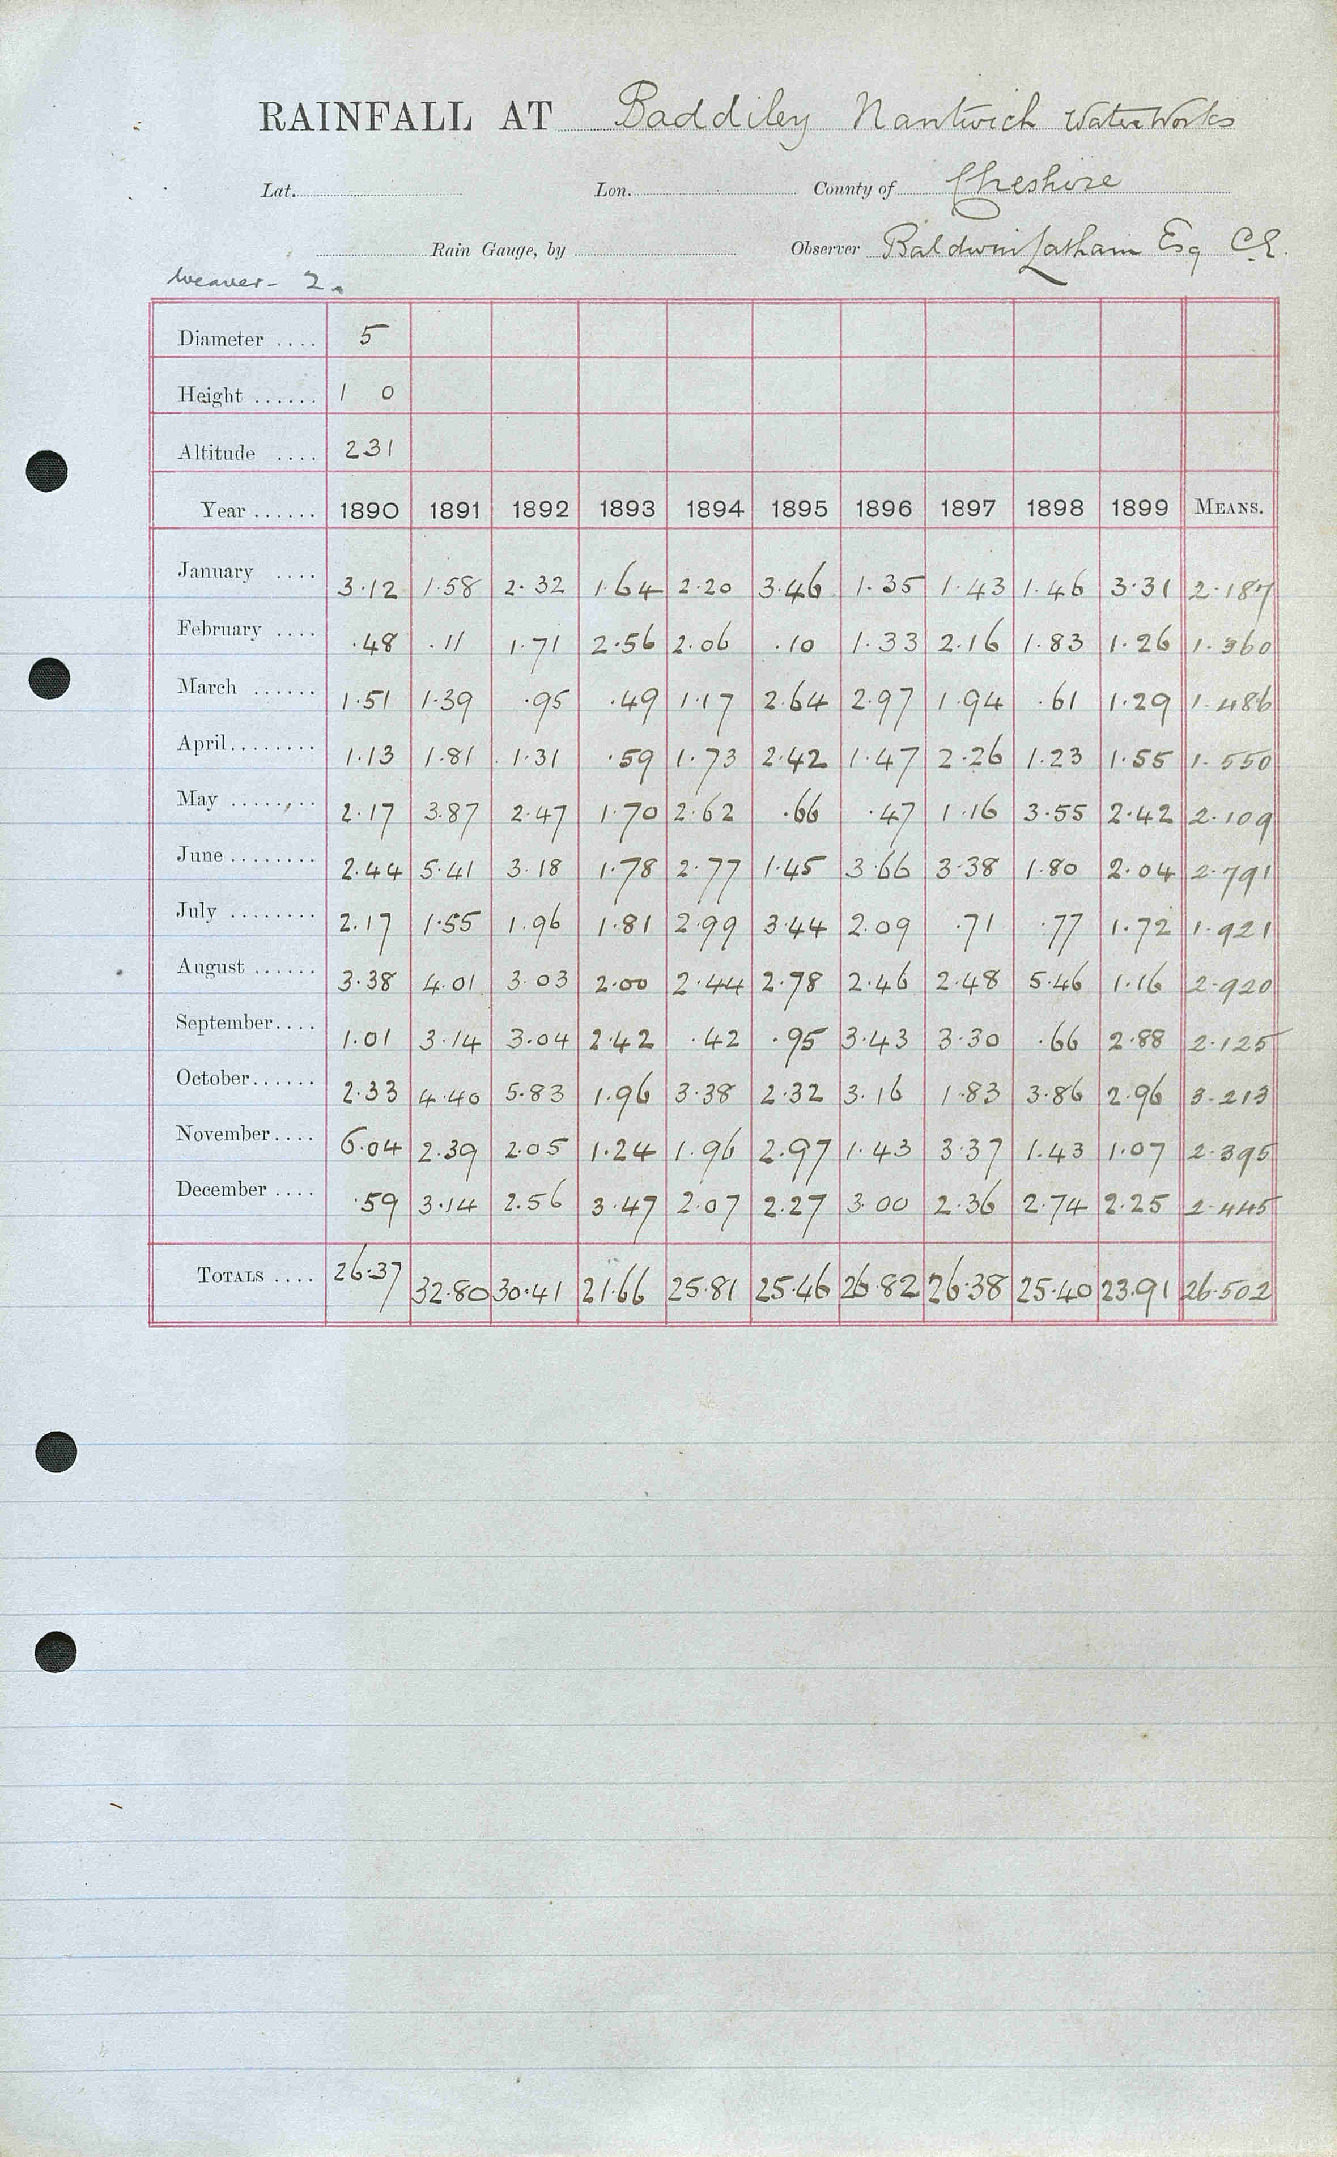 RAINFALL AT Baddiley Nantwich Water Works
Lat. Lon. County of Cheshire
Rain Gauge, by Observer Baldwin Latham Esq C.E.
Weaver - 2.
Diameter .... 5
Height ...... 1 0
Altitude .... 231
Year ...... 1890 1891 1892 1893 1894 1895 1896 1897 1898 1899 MEANS.
January .... 3.12 1.58 2.32 1.64 2.20 3.46 1.35 1.43 1.46 3.31 2.187
February .... .48 .11 1.71 2.56 2.06 .10 1.33 2.16 1.83 1.26 1.360
March ...... 1.51 1.39 .95 .49 1.17 2.64 2.97 1.94 .61 1.29 1.486
April........ 1.13 1.81 1.31 .59 1.73 2.42 1.47 2.26 1.23 1.55 1.550
May ........ 2.17 3.87 2.47 1.70 2.62 .66 .47 1.16 3.55 2.42 2.109
June ........ 2.44 5.41 3.18 1.78 2.77 1.45 3.66 3.38 1.80 2.04 2.791
July ........ 2.17 1.55 1.96 1.81 2.99 3.44 2.09 .71 .77 1.72 1.921
August ...... 3.38 4.01 3.03 2.00 2.44 2.78 2.46 2.48 5.46 1.16 2.920
September.... 1.01 3.14 3.04 2.42 .42 .95 3.43 3.30 .66 2.88 2.125
October...... 2.33 4.40 5.83 1.96 3.38 2.32 3.16 1.83 3.86 2.96 3.213
November.... 6.04 2.39 2.05 1.24 1.96 2.97 1.43 3.37 1.43 1.07 2.395
December .... .59 3.14 2.56 3.47 2.07 2.27 3.00 2.36 2.74 2.25 2.445
TOTALS .... 26.37 32.80 30.41 21.66 25.81 25.46 26.82 26.38 25.40 23.91 26.502